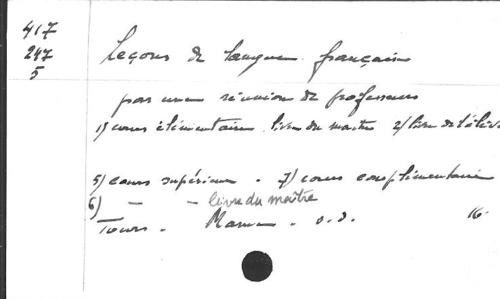 417
247
5
Leçons de langue française
par une réunion de professeurs
1) cours élémentaire livre du maître 2) livre de l'élève
5) cours supérieur - 7) cours complémentaire
6) — — livre du maître
Tours. Mame. s.d. 16